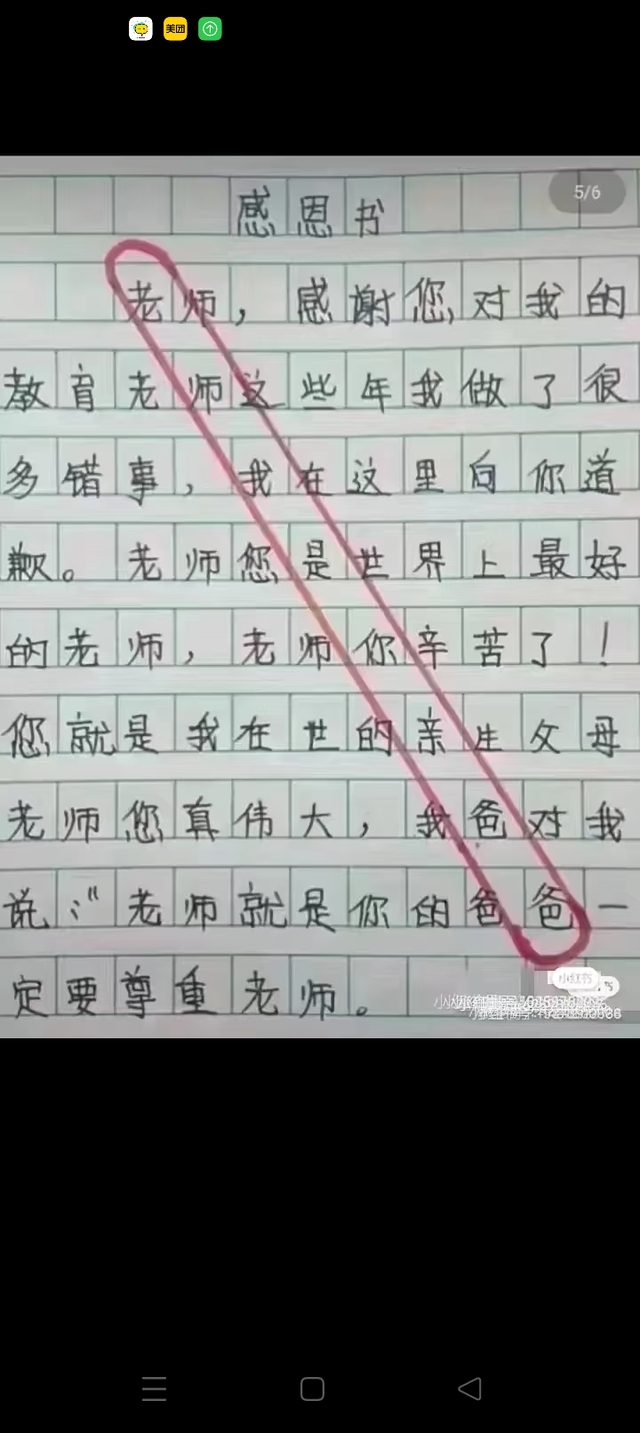 美团
5/6
感恩书
老师，感谢您,对我的
教育老师这些年我做了很
多错事，我在这里向你道
歉。老师您是世界上最好
的老师，老师你辛苦了！
您就是我在世的亲生父母
老师您真伟大，我爸对我
说："老师就是你的爸爸一
定要尊重老师。
小红书